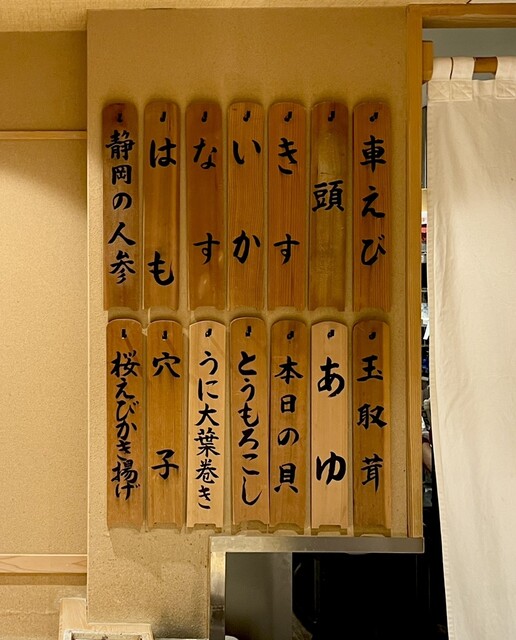 車えび
頭
きす
いか
なす
はも
静岡の人参
玉取茸
あゆ
本日の貝
とうもろこし
うに大葉巻き
穴子
桜えびかき揚げ